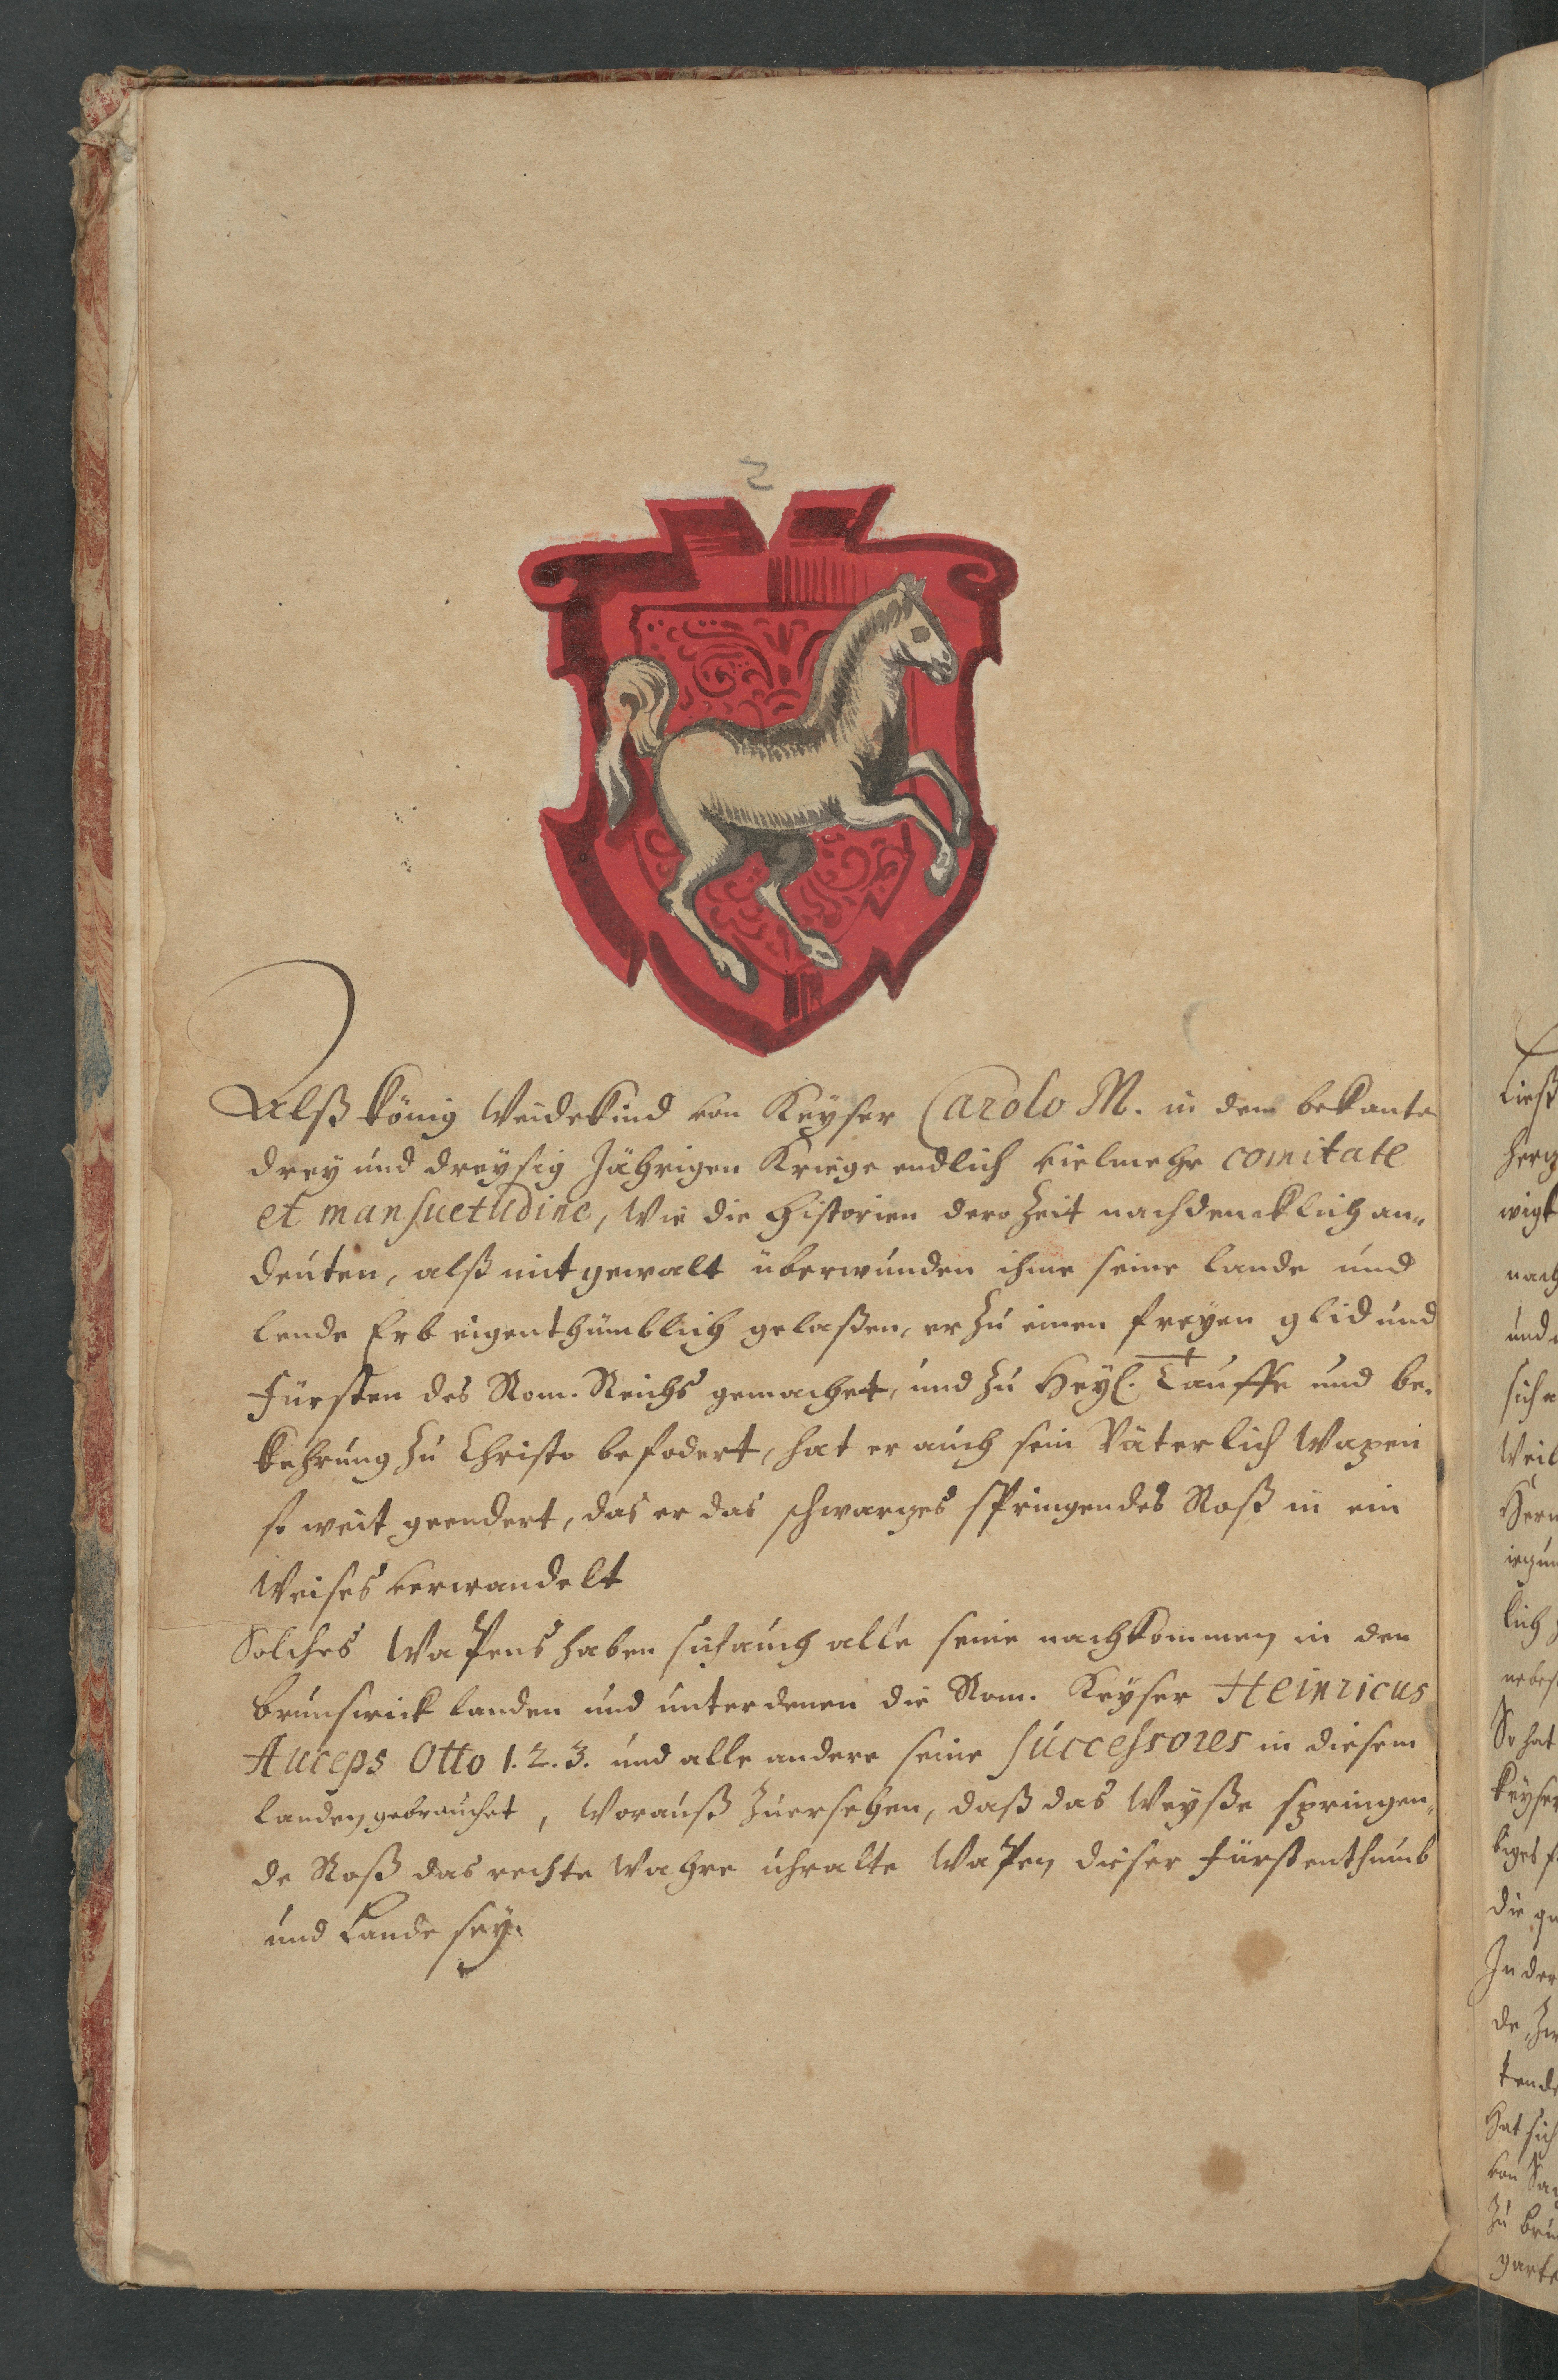 2
Alß König Weidekind von Keyser Carolo M. in dem bekante
drey und dreysig Jährigen Kriege endlich vielmehr comitate
et mansuetudine, Wie die Historien dero Zeit nachdencklich an„
deuten, alß mit gewalt überwunden ihme seine lande und
lende Erb eigenthümblich gelaßen, er zu einen freyen glid und
Fürsten des Rom. Reichs gemachet, und zu Heyl. Tauffe und be„
kehrung zu Christo befodert, hat er auch sein Väterlich Wapen
so weit geendert, das er das schwarzes springendes Roß in ein
Weises verwandelt
Solches Wapens haben sich auch alle seine nachkommen in den
brunswick landen und unter denen die Rom. Keyser Heinricus
Auceps Otto 1. 2. 3. und alle andere seine successores in diesem
landen gebrauchet, Worauß zu ersehen, daß das Weyße springen„
de Roß das rechte Wahre uhralte Wapen dieser fürstenthumb
und Lande sey.
ließ
wigk
nach
und
sich
Weil
lich
So hat
Keyser
die
In der
de
Hat sich
von
zu